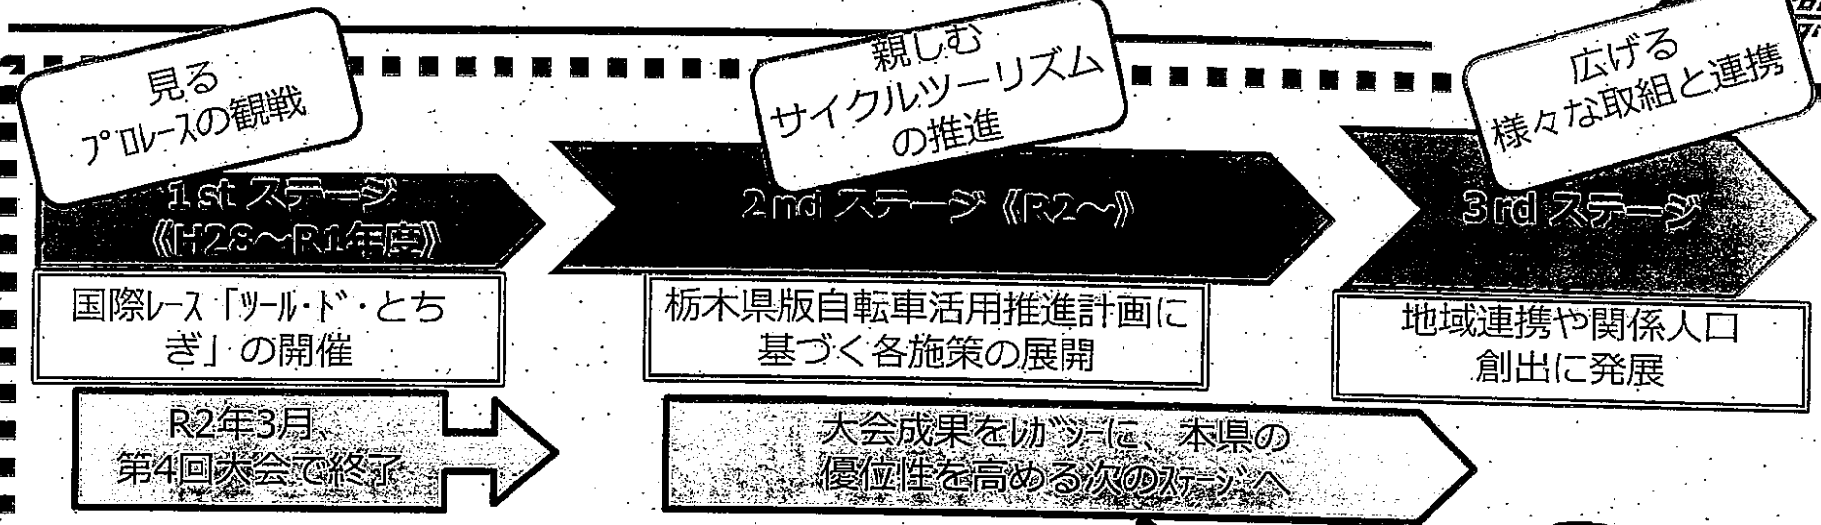 見る
ﾌﾟﾛﾚｰｽの観戦
1st ステージ
《H28～R1年度》
国際ﾚｰｽ「ﾂｰﾙ･ﾄﾞ･とち
ぎ」の開催
R2年3月、
第4回大会で終了
親しむ
サイクルツーリズム
の推進
2nd ステージ《R2～》
栃木県版自転車活用推進計画に
基づく各施策の展開
大会成果をﾚｶﾞｼｰに、本県の
優位性を高める次のｽﾃｰｼﾞへ
広げる
様々な取組と連携
3rd ステージ
地域連携や関係人口
創出に発展